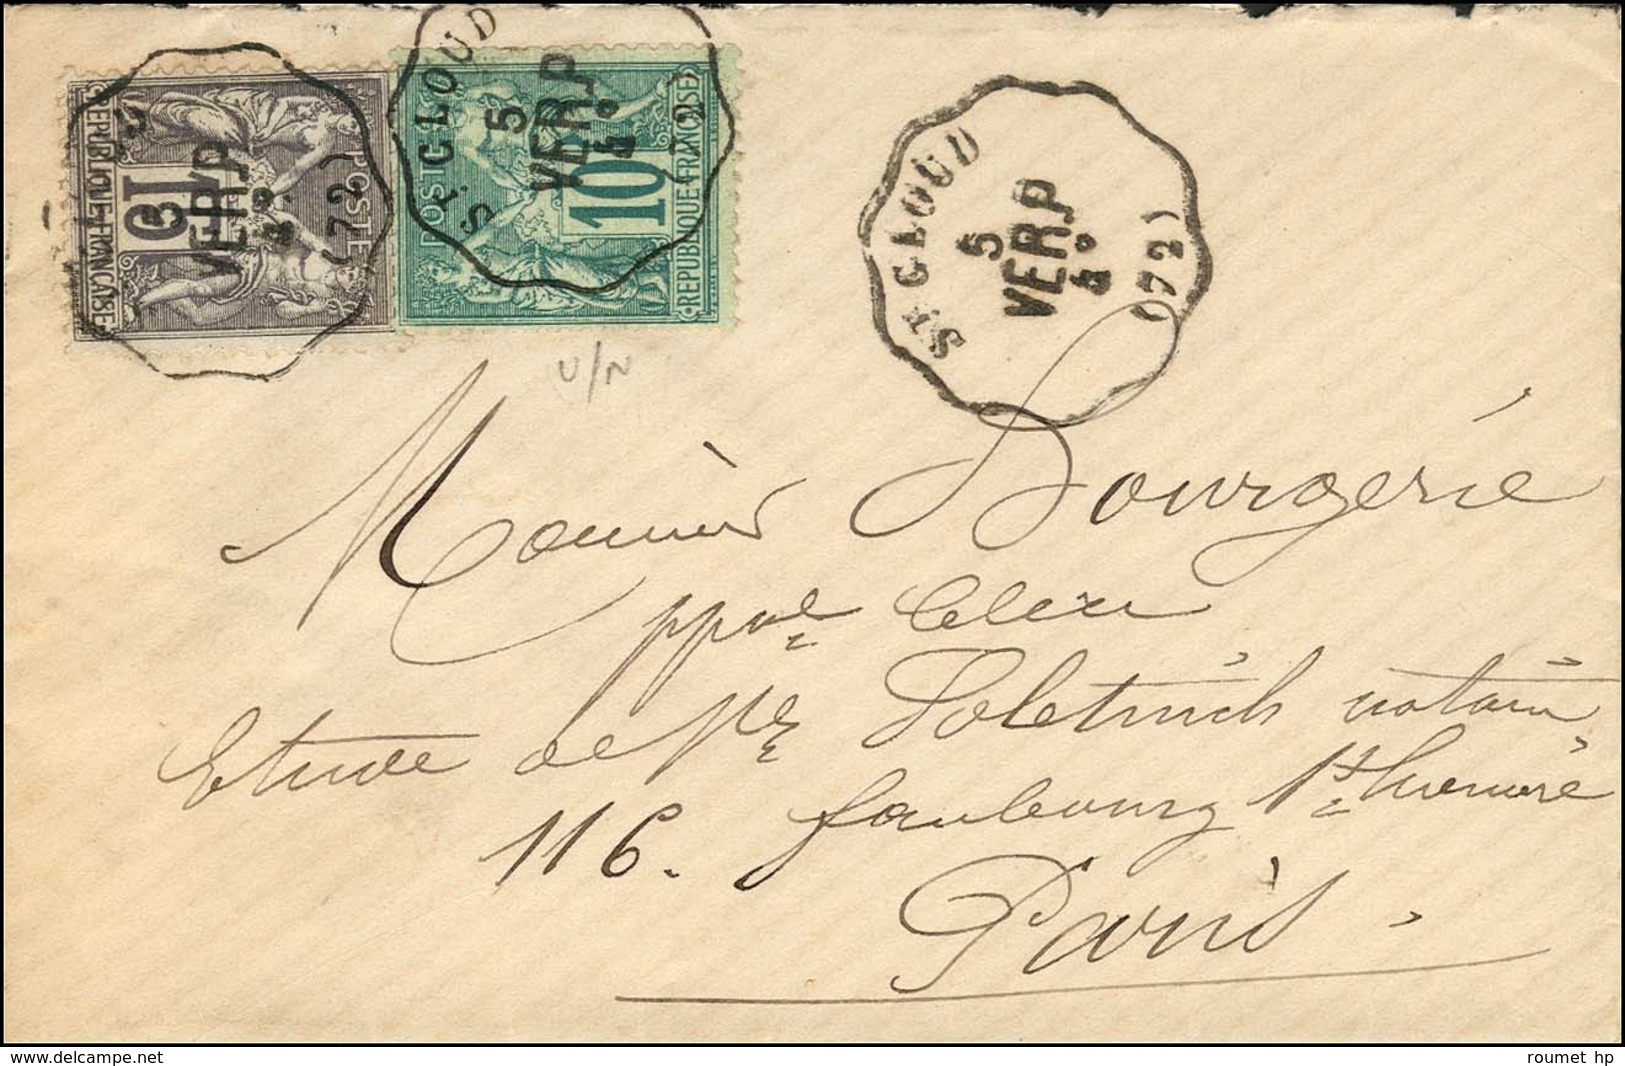 REPUBLIQUE FRANÇAISE
POSTE
15
VER.P
4°
(72)
POSTE
10
REPUBLIQUE FRANÇAISE
ST CLOUD
5
VER.P
4°
72
ST CLOUD
5
VER.P
4°
(72)
U/N
Monsieur Bourgerie
ppal Clerc
Etude de Me notaire
116. faubourg St honoré
Paris.
www.delcampe.net
roumet hp